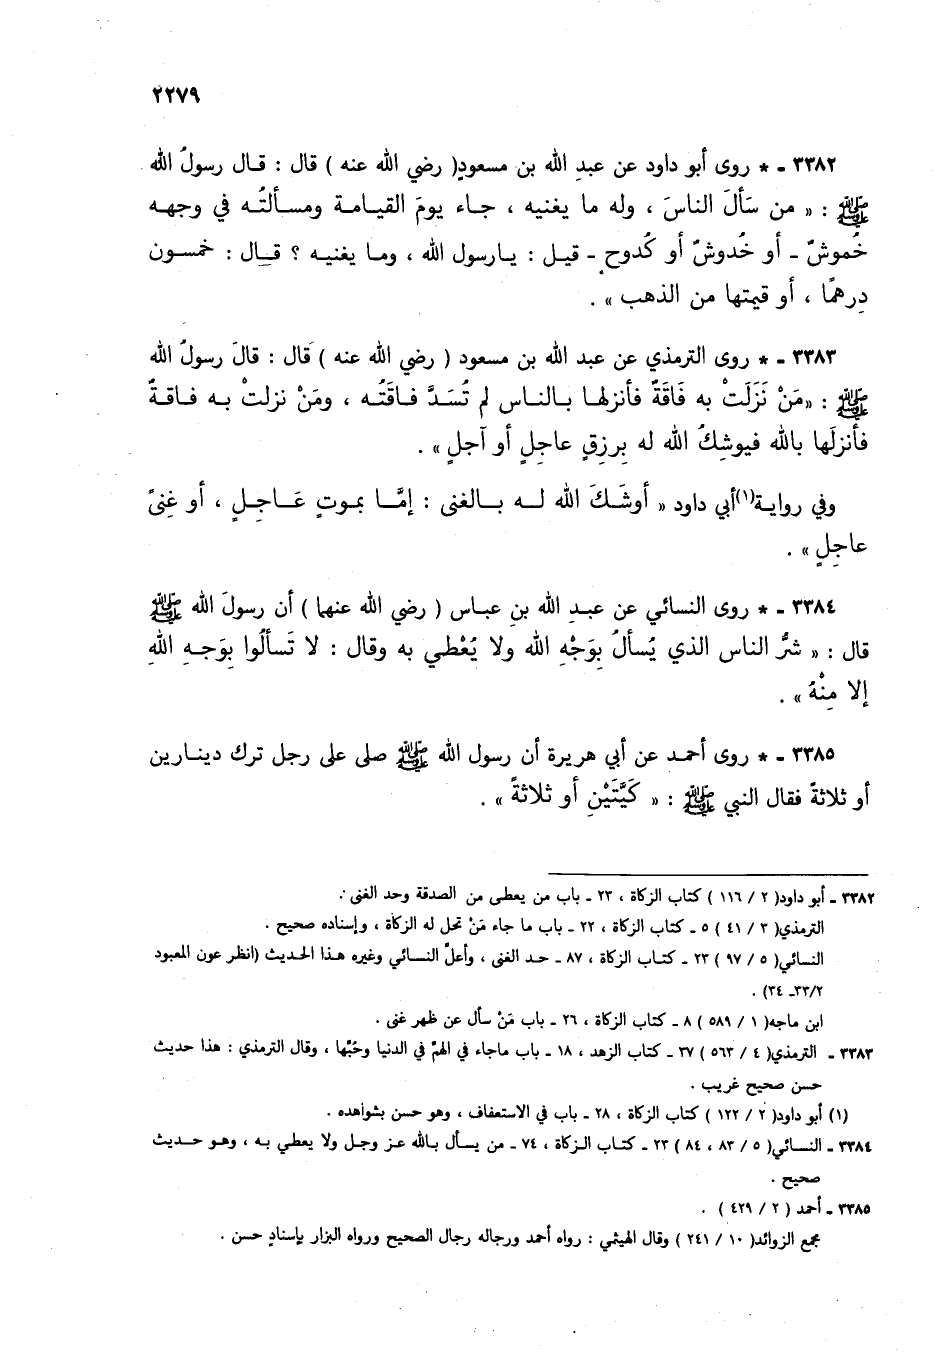 ٢٢٧٩
٣٣٨٢ ـ * روى أبو داود عن عبدِ الله بن مسعودٍ( رضي الله عنه ) قال : قـال رسولُ الله
ﷺ : « من سَألَ الناسَ ، وله ما يغنيه ، جـاء يومَ القيـامـة ومسـألتُـه في وجهـه
خُموشٌ ـ أو خُدوشٌ أو كُدوحٍ ـ قيـل : يـارسول الله ، ومـا يغنيـه ؟ قـال : خمسـون
درهمًا ، أو قيمتها من الذهب » .
٣٣٨٣ ـ * روى الترمذي عن عبد الله بن مسعود ( رضي الله عنه ) قال : قالَ رسولُ الله
ﷺ : «مَنْ نَزَلَتْ به فَاقَةٌ فأنزلهـا بـالنـاس لم تُسَدَّ فـاقَتُـه ، ومَنْ نزلتْ بـه فـاقـةٌ
فأنزلَها بالله فيوشِكُ الله له بِرزقٍ عاجلٍ أو آجلٍ » .
وفي روايـة(١)أبي داود « أوشَـكَ الله لــه بــالغنى : إمَّـا بمـوتٍ عَـاجِـلٍ ، أو غِنىً
عاجِلٍ » .
٣٣٨٤ ـ * روى النسائي عن عبـدِ الله بنِ عبـاس ( رضي الله عنهما ) أن رسولَ الله ﷺ
قال : « شرُّ الناس الذي يُسألُ بِوَجْهِ الله ولا يُعْطي به وقال : لا تَسألُوا بِوَجـهِ اللهِ
إلا مِنْهُ » .
٣٣٨٥ ـ * روى أحمـد عن أبي هريرة أن رسول الله ﷺ صلى على رجل ترك دينـارين
أو ثلاثةً فقال النبي ﷺ : « كَيَّتَيْنِ أو ثلاثةً » .
٣٣٨٢ ـ أبو داود( ٢ / ١١٦ ) كتاب الزكاة ، ٢٣ ـ باب من يعطى من الصدقة وحد الغنى .
الترمذي( ٣ / ٤١ ) ٥ ـ كتاب الزكاة ، ٢٢ ـ باب ما جاء مَنْ تحل له الزكاة ، وإسناده صحيح .
النسائي( ٥ / ٩٧ ) ٢٣ ـ كتـاب الزكاة ، ٨٧ ـ حـد الغنى ، وأعلَّ النسائي وغيره هـذا الحـديث (انظر عون المعبود
٢/‏٣٣ـ ٣٤) .
ابن ماجه( ١ / ٥٨٩ ) ٨ ـ كتاب الزكاة ، ٢٦ ـ باب مَنْ سأل عن ظهر غنى .
٣٣٨٣ ـ الترمذي( ٤ / ٥٦٣ ) ٣٧ ـ كتاب الزهد ، ١٨ ـ باب ماجاء في الهمِّ في الدنيا وحُبِّها ، وقال الترمذي : هذا حديث
حسن صحيح غريب .
(١) أبو داود( ٢ / ١٢٢ ) كتاب الزكاة ، ٢٨ ـ باب في الاستعفاف ، وهو حسن بشواهده .
٣٣٨٤ ـ النسائي( ٥ / ٨٣ ، ٨٤ ) ٢٣ ـ كتـاب الـزكاة ، ٧٤ ـ من يسأل بـالله عـز وجـل ولا يعطي بـه ، وهـو حـديث
صحيح .
٣٣٨٥ ـ أحمد ( ٢ / ٤٢٩ ) .
مجمع الزوائد( ١٠ / ٢٤١ ) وقال الهيثمي : رواه أحمد ورجاله رجال الصحيح ورواه البزار بإسنادٍ حسن .